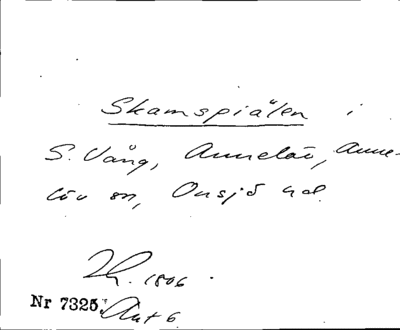 Skamspiälen i
S. Vång, Annelöv, Anne-
löv sn, Onsjö hd.
Lh. 1806.
Nr 7325. Akt 6